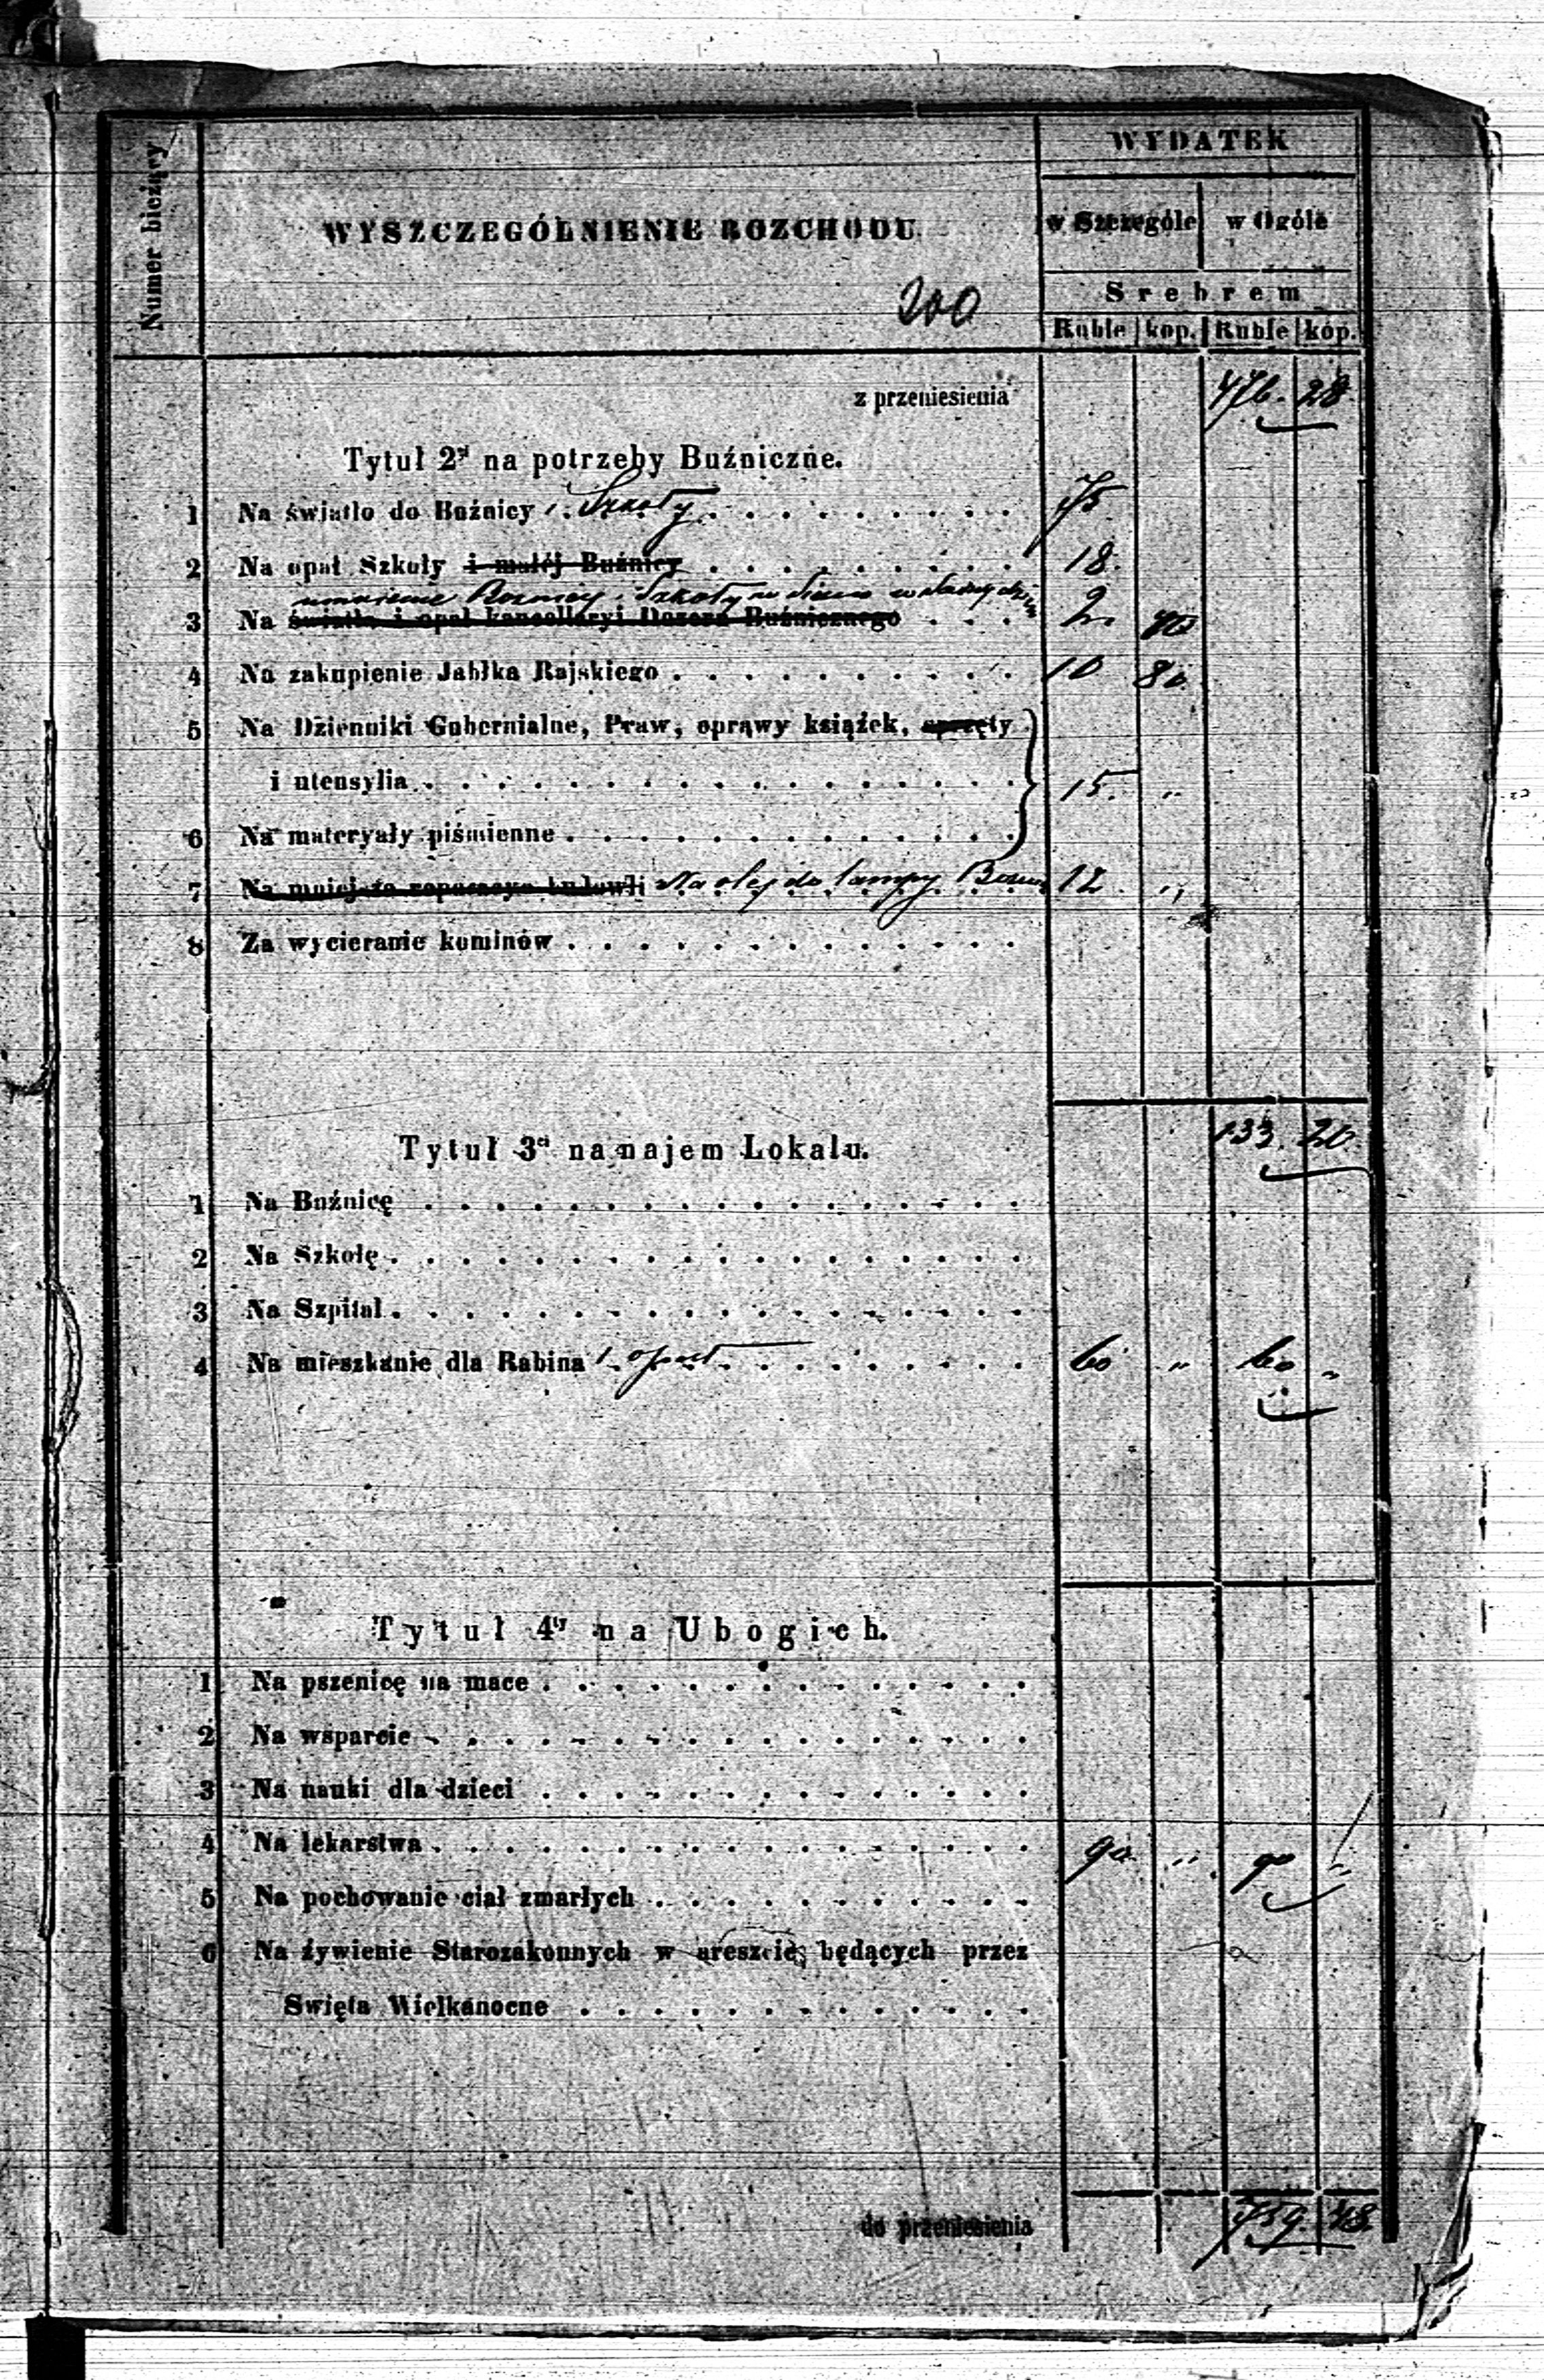 Numer bieżący
WYSZCZEGÓLNIENIE ROZCHODU
WYDATEK
w Szczególe w Ogóle
Srebrem
Ruble kop. Ruble kop.
200
z przeniesienia 476. 28.
Tytuł 2gi na potrzeby Buźniczne.
1 Na światło do Buźnicy i Szkoły 75
2 Na opał Szkoły i małéj Buźnicy 18.
Boznicy i Szkoły w
3 Na światło i opał kancellaryi Dozoru Buźnicznego 2. 40
4 Na zakupienie Jabłka Rajskiego 10 80
5 Na Dzienniki Gubernialne, Praw, oprawy książek, sprzęty
i utensylia 15. "
6 Na materyały piśmienne
7 Na mniejsze reparacye budowli Na olej do lampy 12. "
8 Za wycieranie kominów
133. 20
Tytuł 3ci na najem Lokalu.
1 Na Buźnicę
2 Na Szkołę
3 Na Szpital
4 Na mieszkanie dla Rabina i opał 60 " 60 "
Tytuł 4ty na Ubogich.
1 Na pszenicę na mace
2 Na wsparcie
3 Na nauki dla dzieci
4 Na lekarstwa 90 " 90 "
5 Na pochowanie ciał zmarłych
6 Na żywienie Starozakonnych w areszcie będących przez
Swięta Wielkanocne
do przeniesienia 759. 48.